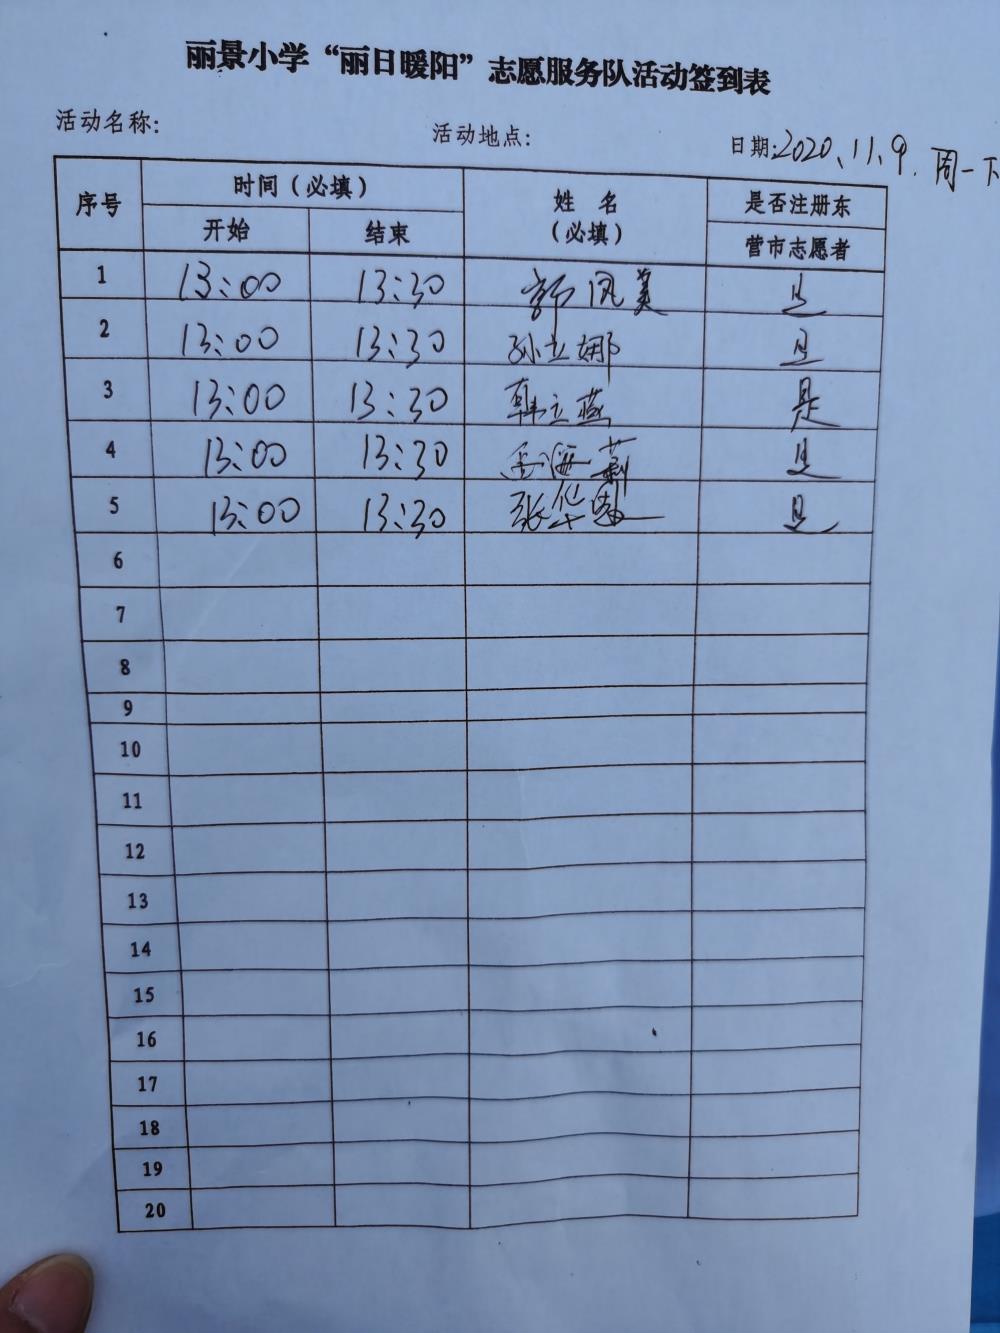 丽景小学“丽日暖阳”志愿服务队活动签到表
活动名称: 活动地点: 日期:2020、11、9. 周一下
序号 时间（必填） 姓 名（必填） 是否注册东营市志愿者
开始 结束
1 13:00 13:30 郭凤美 是
2 13:00 13:30 孙立娜 是
3 13:00 13:30 韩立燕 是
4 13:00 13:30 是
5 13:00 13:30 张华 是
6
7
8
9
10
11
12
13
14
15
16
17
18
19
20